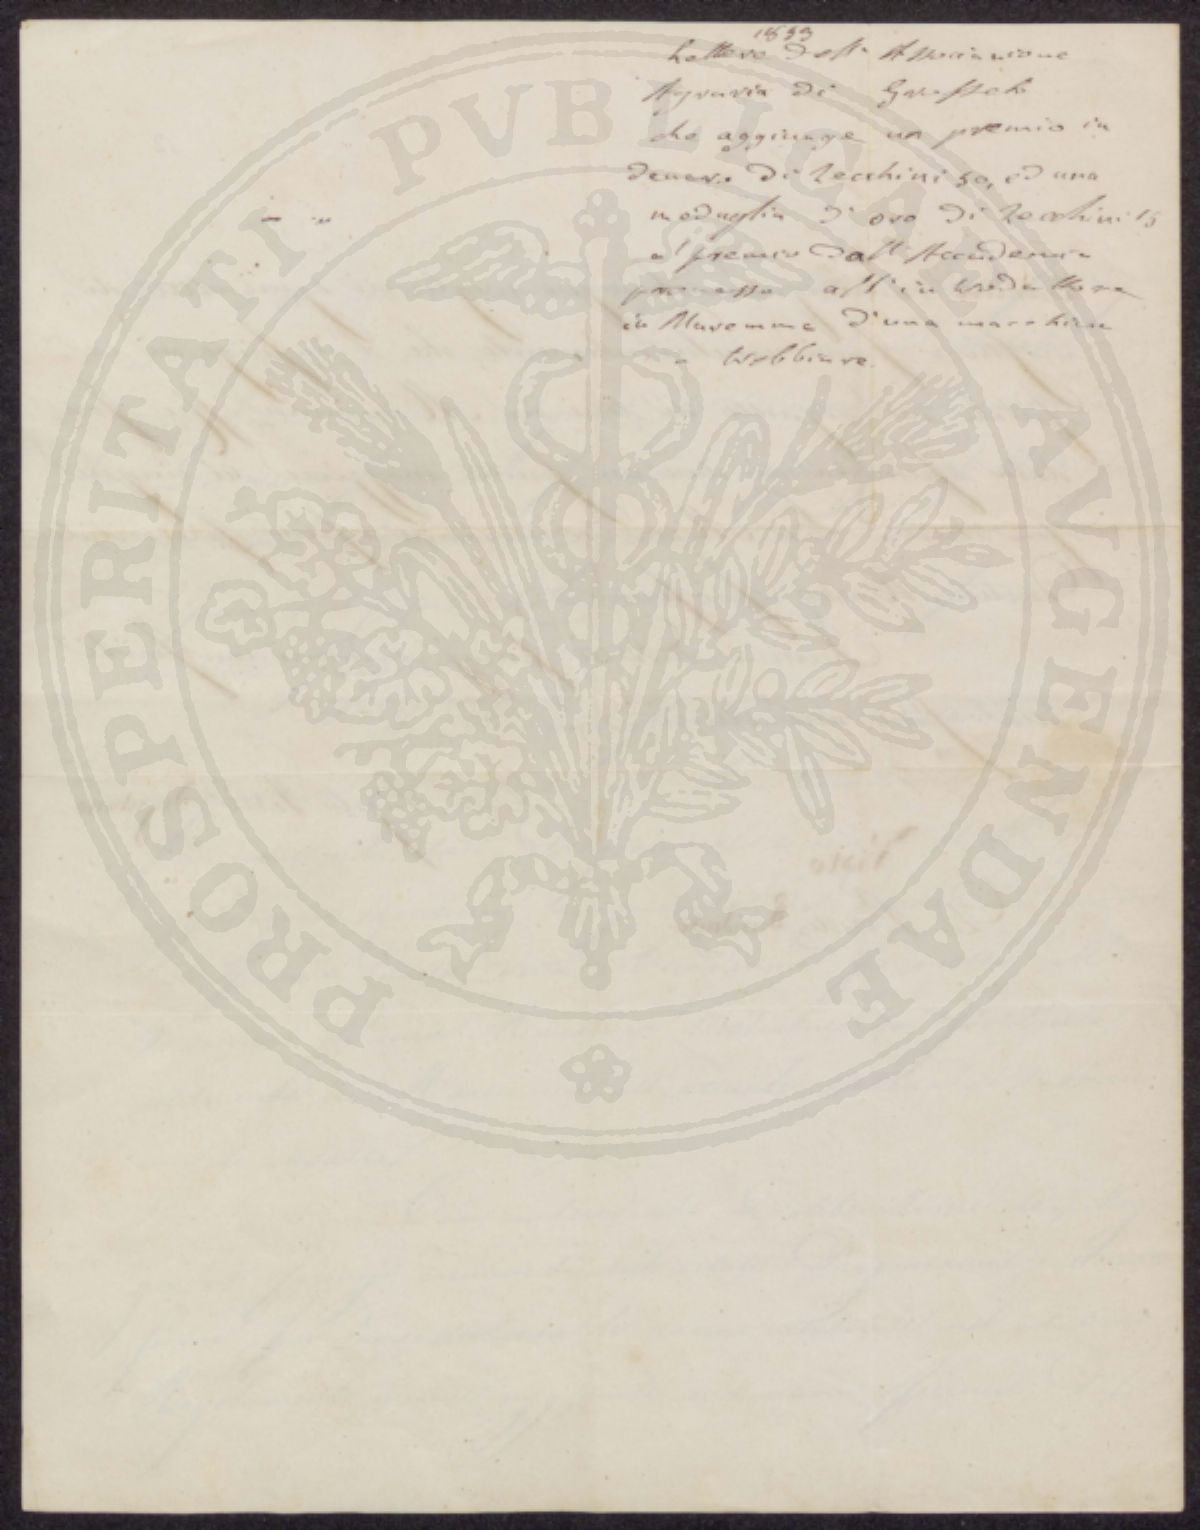 1853
Lettera dell'Associazione
Agraria di Grosseto
che aggiunge un premio in
denaro di Zecchini 50, ed una
medaglia d'oro di Zecchini 15
al premio dall'Accademia
promesso all'introduttore
in Maremma d'una macchina
a trebbiare.
PROSPERITATI PVBLICAE AVGENDAE